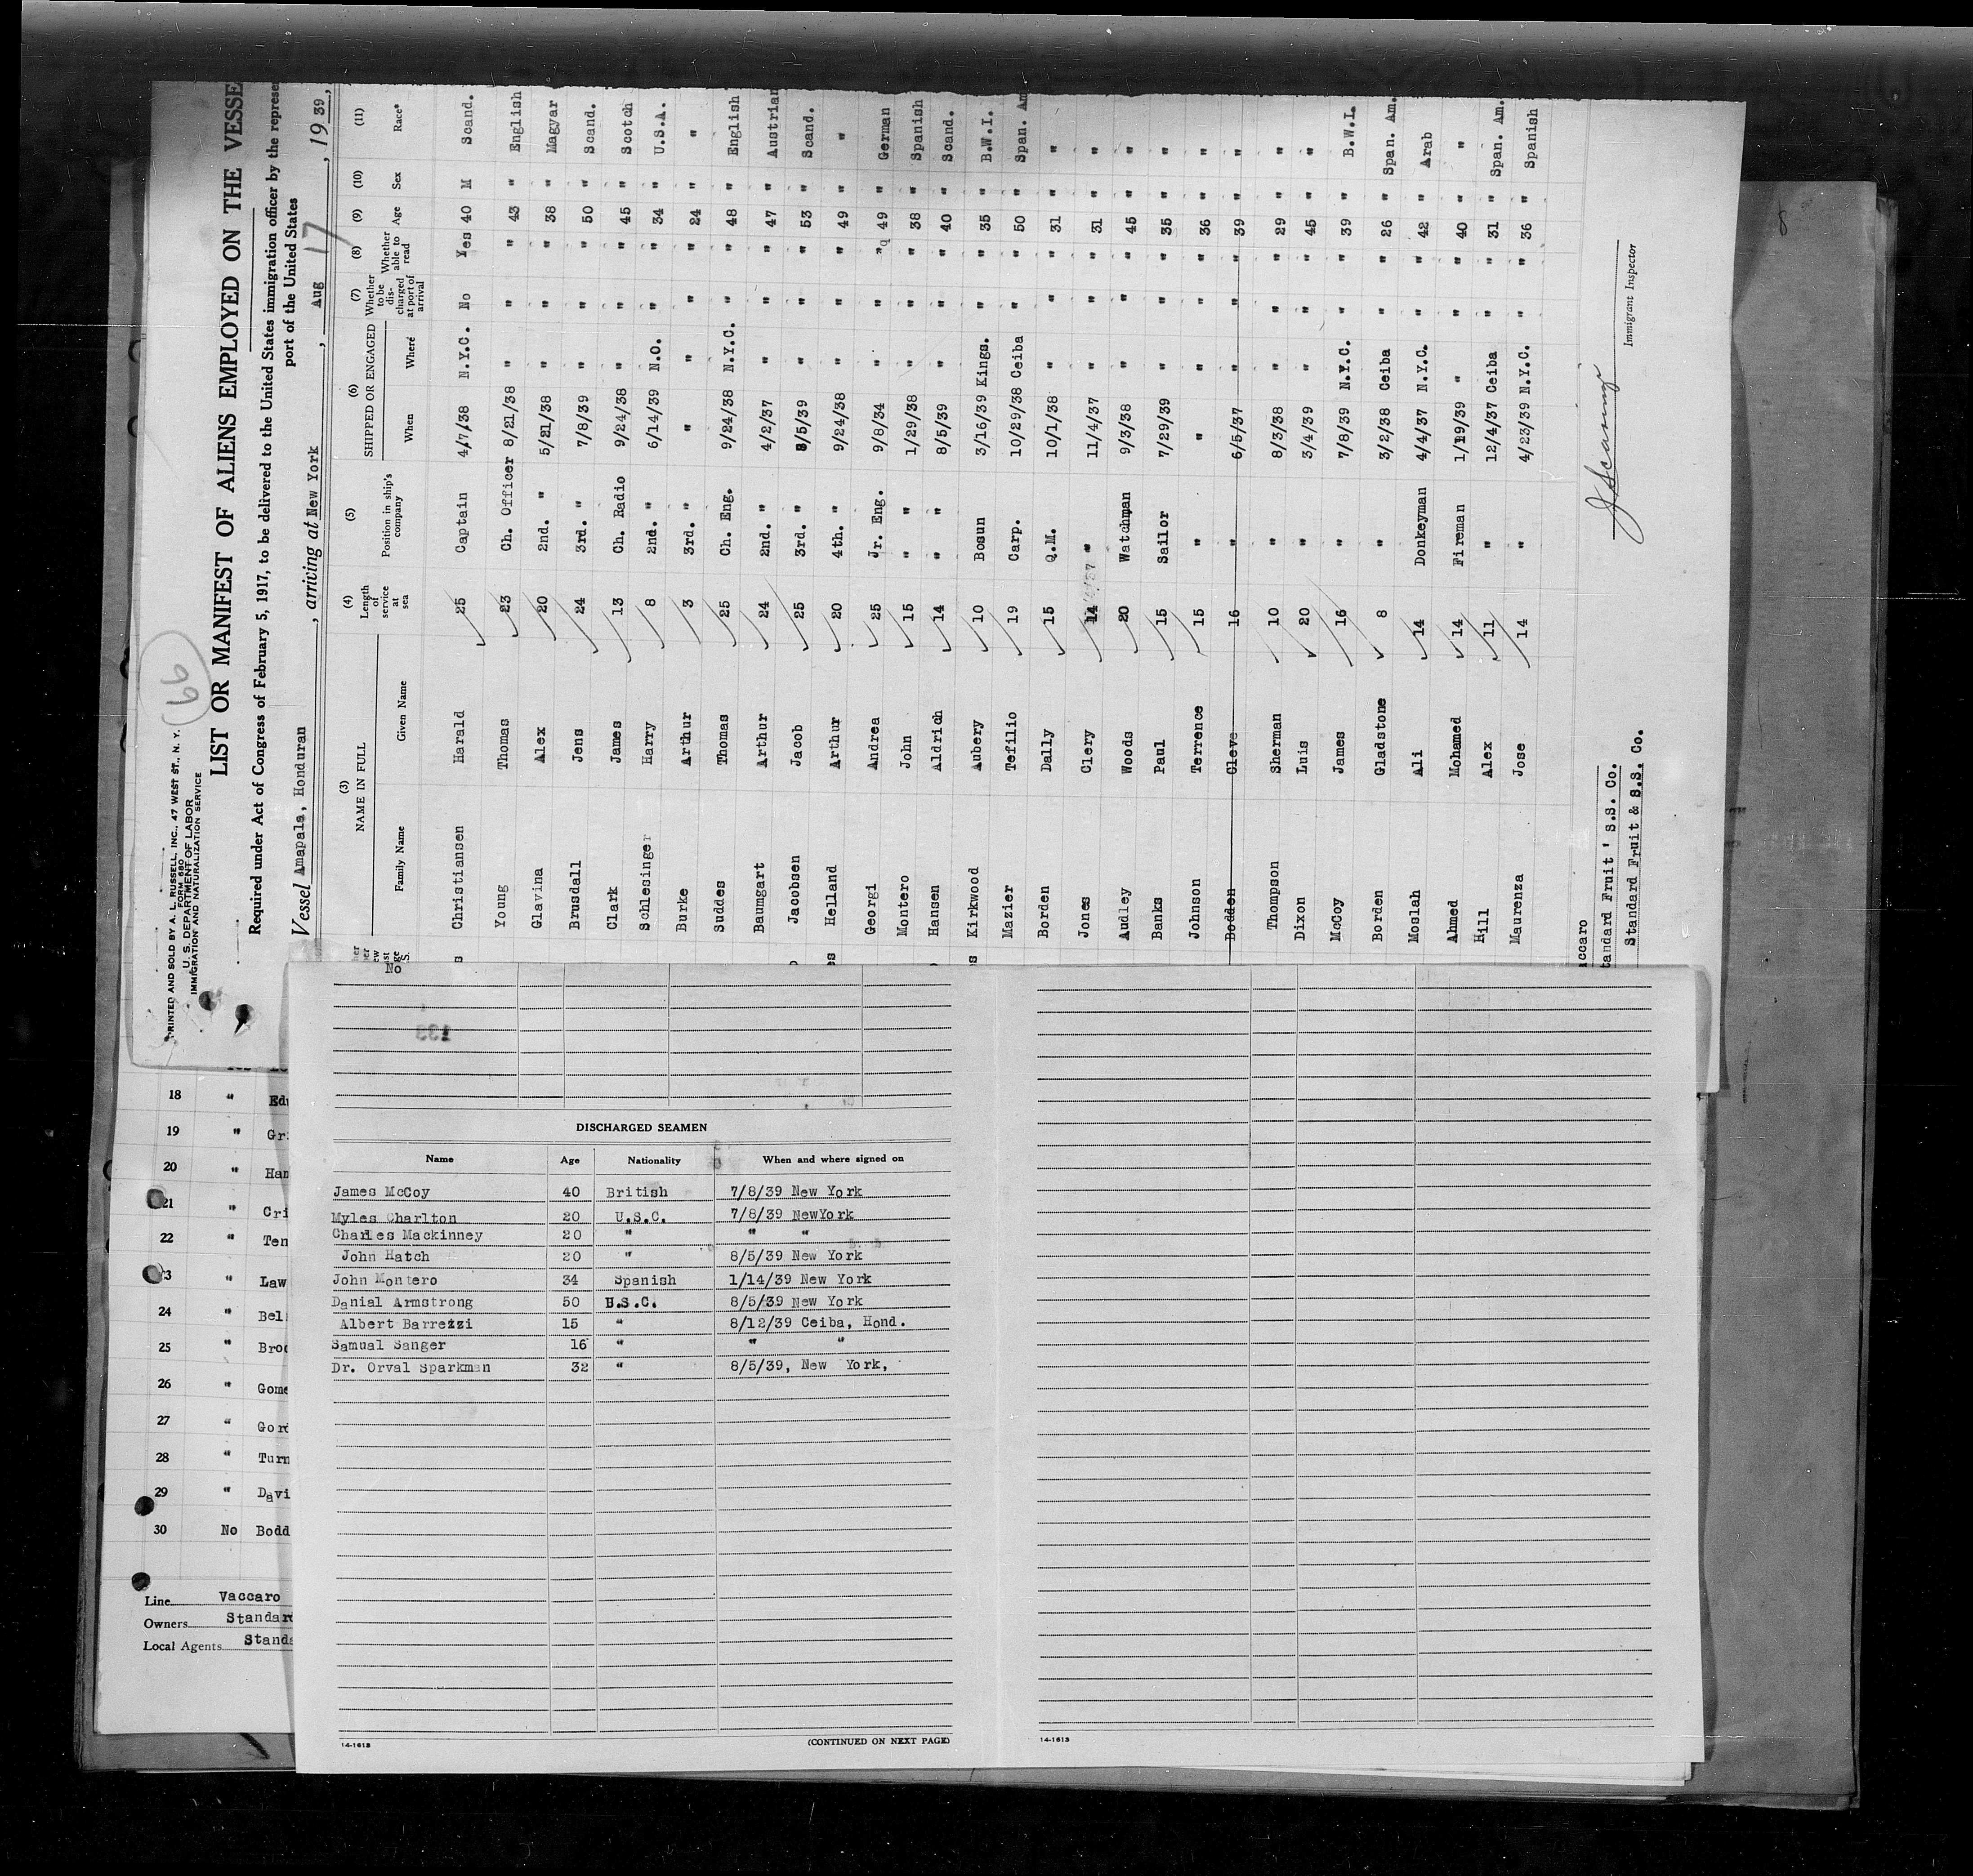 PRINTED AND SOLD BY A. L. RUSSELL, INC., 47 WEST ST., N. Y.
FORM 680
U. S. DEPARTMENT OF LABOR
IMMIGRATION AND NATURALIZATION SERVICE
99
LIST OR MANIFEST OF ALIENS EMPLOYED ON THE VESSE
Required under Act of Congress of February 5, 1917, to be delivered to the United States immigration officer by the represe
port of the United States
Vessel Amapala, Honduran , arriving at New York , Aug 17 , 1939,
(3) NAME IN FULL Family Name Given Name (4) Length of service at sea (5) Position in ship's company (6) SHIPPED OR ENGAGED When Where (7) Whether to be discharged at port of arrival (8) Whether able to read (9) Age (10) Sex (11) Race*
Christiansen Harald 25 Captain 4/7/38 N.Y.C. No Yes 40 M Scand.
Young Thomas 23 Ch. Officer 8/21/38 " " " 43 " English
Glavina Alex 20 2nd. " 5/21/38 " " " 38 " Magyar
Brusdall Jens 24 3rd. " 7/8/39 " " " 50 " Scand.
Clark James 13 Ch. Radio 9/24/38 " " " 45 " Scotch
Schlesinger Harry 8 2nd. " 6/14/39 N.O. " " 34 " U.S.A.
Burke Arthur 3 3rd. " " " " " 24 " "
Suddes Thomas 25 Ch. Eng. 9/24/38 N.Y.C. " " 48 " English
Baumgart Arthur 24 2nd. " 4/2/37 " " " 47 " Austrian
Jacobsen Jacob 25 3rd. " 8/5/39 " " " 53 " Scand.
Helland Arthur 20 4th. " 9/24/38 " " " 49 " "
Georgi Andrea 25 Jr. Eng. 9/8/34 " " " 49 " German
Montero John 15 " " 1/29/38 " " " 38 " Spanish
Hansen Aldrich 14 " " 8/5/39 " " " 40 " Scand.
Kirkwood Aubery 10 Bosun 3/16/39 Kings. " " 35 " B.W.I.
Mazier Teffilio 19 Carp. 10/29/38 Ceiba " " 50 " Span. Am
Borden Dally 15 Q.M. 10/1/38 " " " 31 " "
Jones Clery 14 " 11/4/37 " " " 31 " "
Audley Woods 20 Watchman 9/3/38 " " " 45 " "
Banks Paul 15 Sailor 7/29/39 " " " 35 " "
Johnson Terrence 15 " " " " " 36 " "
Bodden Cleve 16 " 6/5/37 " " " 39 " "
Thompson Sherman 10 " 8/3/38 " " " 29 " "
Dixon Luis 20 " 3/4/39 " " " 45 " "
McCoy James 16 " 7/8/39 N.Y.C. " " 39 " B.W.I.
Borden Gladstone 8 " 3/2/38 Ceiba " " 26 " Span. Am.
Moslah Ali 14 Donkeyman 4/4/37 N.Y.C. " " 42 " Arab
Ahmed Mohamed 14 Fireman 1/19/39 " " " 40 " "
Hill Alex 11 " 12/4/37 Ceiba " " 31 " Span. Am.
Maurenza Jose 14 " 4/23/39 N.Y.C. " " 36 " Spanish
accaro
tandard Fruit ' S.S. Co.
Standard Fruit & S.S. Co.
Immigrant Inspector
No
18 " Edu
19 " Gr
20 " Han
21 " Cri
22 " Ten
23 " Law
24 " Bel
25 " Broo
26 " Gome
27 " Gord
28 " Turn
29 " Davi
30 No Bodd
Line Vaccaro
Owners Standard
Local Agents Standa
133
DISCHARGED SEAMEN
Name Age Nationality When and where signed on
James McCoy 40 British 7/8/39 New York
Myles Charlton 20 U.S.C. 7/8/39 NewYork
Charles Mackinney 20 " " "
John Hatch 20 " 8/5/39 New York
John Montero 34 Spanish 1/14/39 New York
Danial Armstrong 50 U.S.C. 8/5/39 New York
Albert Barrezzi 15 " 8/12/39 Ceiba, Hond.
Samual Sanger 16 " " "
Dr. Orval Sparkman 32 " 8/5/39, New York,
14-1613
(CONTINUED ON NEXT PAGE)
14-1613